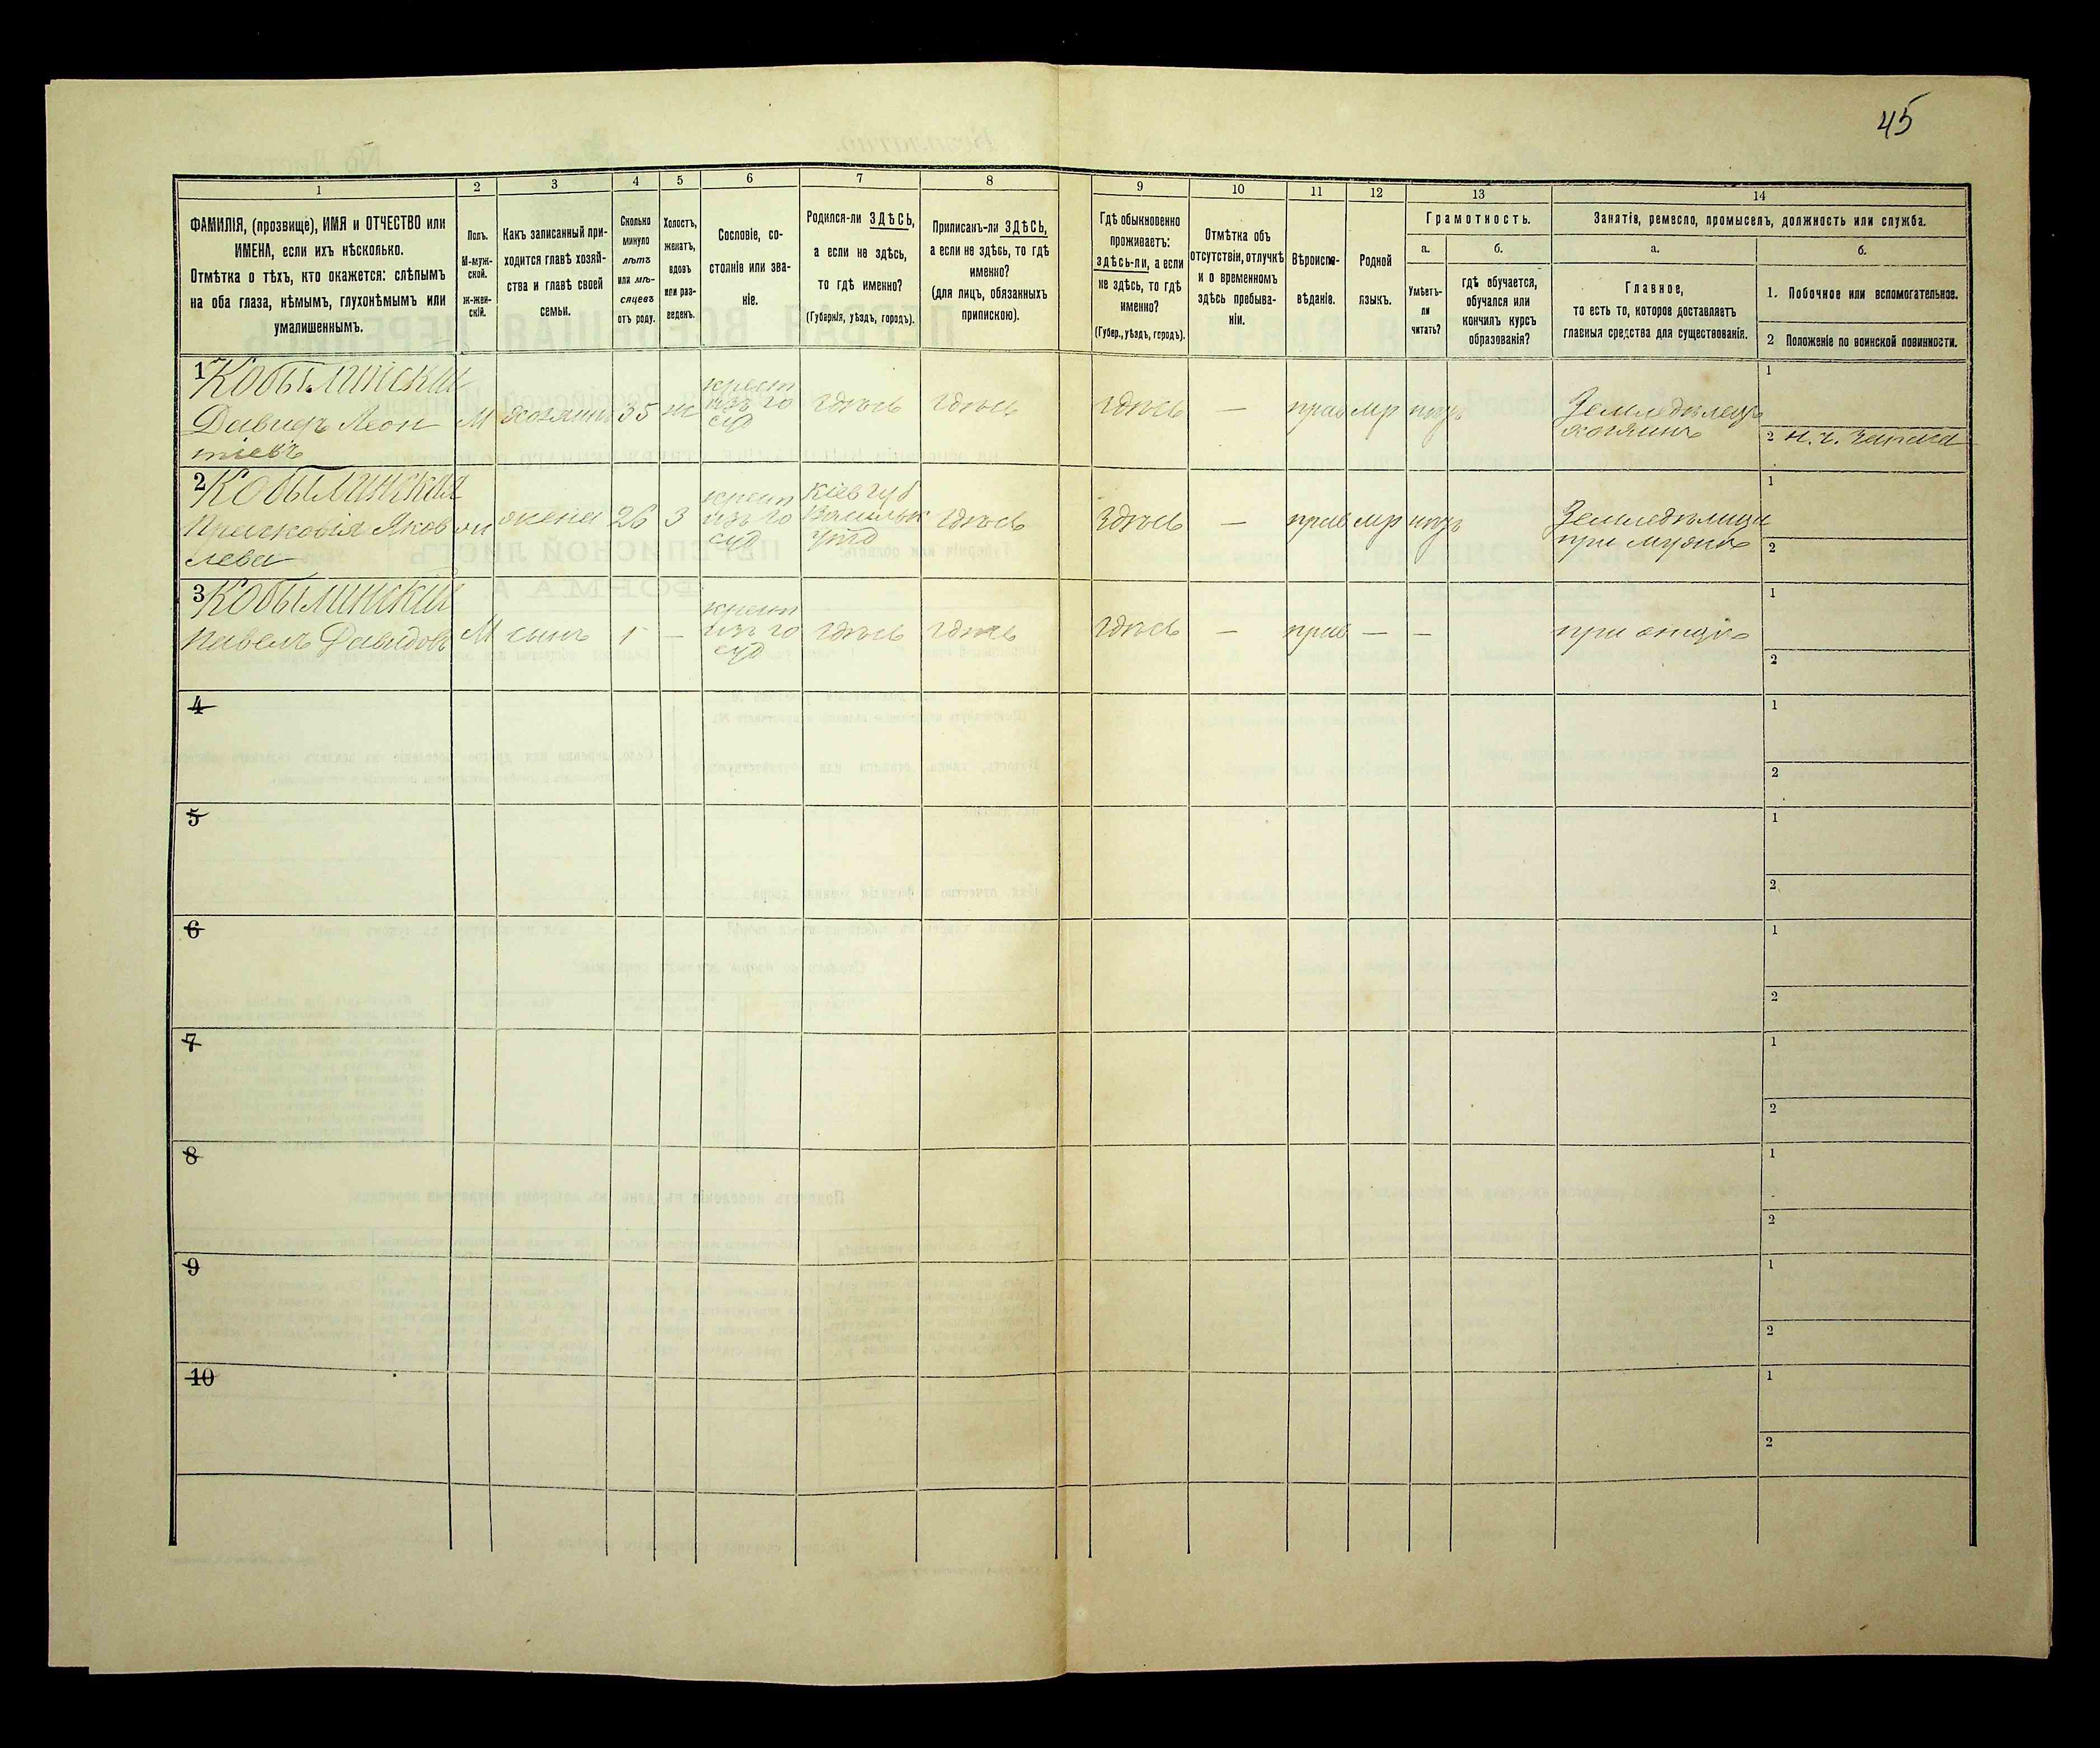 45
1
2
3
4
5
6
7
8
9
10
11
12
13
14
ФАМИЛІЯ, (прозвище), ИМЯ и ОТЧЕСТВО или
ИМЕНА, если ихъ нѣсколько.
Отмѣтка о тѣхъ, кто окажется: слѣпымъ
на оба глаза, нѣмымъ, глухонѣмымъ или
умалишеннымъ.
Полъ.
М-муж-
ской.
Ж-жен-
скій.
Какъ записанный при-
ходится главѣ хозяй-
ства и главѣ своей
семьи.
Сколько
минуло
лѣтъ
или мѣ-
сяцевъ
отъ роду.
Холостъ,
женатъ,
вдовъ
или раз-
веденъ.
Сословіе, со-
стояніе или зва-
ніе.
Родился-ли ЗДѢСЬ,
а если не здѣсь,
то гдѣ именно?
(Губернія, уѣздъ, городъ).
Приписанъ-ли ЗДѢСЬ,
а если не здѣсь, то гдѣ
именно?
(для лицъ, обязанныхъ
припискою).
Гдѣ обыкновенно
проживаетъ:
здѣсь-ли, а если
не здѣсь, то гдѣ
именно?
(Губер., уѣздъ, городъ).
Отмѣтка объ
отсутствіи, отлучкѣ
и о временномъ
здѣсь пребыва-
ніи.
Вѣроиспо-
вѣданіе.
Родной
языкъ.
Грамотность.
а.
б.
Умѣетъ-
ли
читать?
гдѣ обучается,
обучался или
кончилъ курсъ
образованія?
Занятіе, ремесло, промыселъ, должность или служба.
а.
б.
Главное,
то есть то, которое доставляетъ
главныя средства для существованія.
1. Побочное или вспомогательное.
2 Положеніе по воинской повинности.
1 Кобылинскій
Давидъ Леон
тіевъ
М
хозяинъ
35
ж
крест
изъ го
суд
здѣсь
здѣсь
здѣсь
—
прав
мр
нѣтъ
Земледѣлецъ
хозяинъ
1
2 н. ч. запаса
2 Кобылинская
Прасковія Яков
лева
ж
жена
26
З
крест
изъ го
суд
Кіев губ
Васильк
уѣзд
здѣсь
здѣсь
—
прав
мр
нѣтъ
Земледѣлица
при мужѣ
1
2
3 Кобылинскій
Павелъ Давидовъ
М
сынъ
1
—
крест
изъ го
суд
здѣсь
здѣсь
здѣсь
—
прав
—
—
при отцѣ
1
2
4
1
2
5
1
2
6
1
2
7
1
2
8
1
2
9
1
2
10
1
2